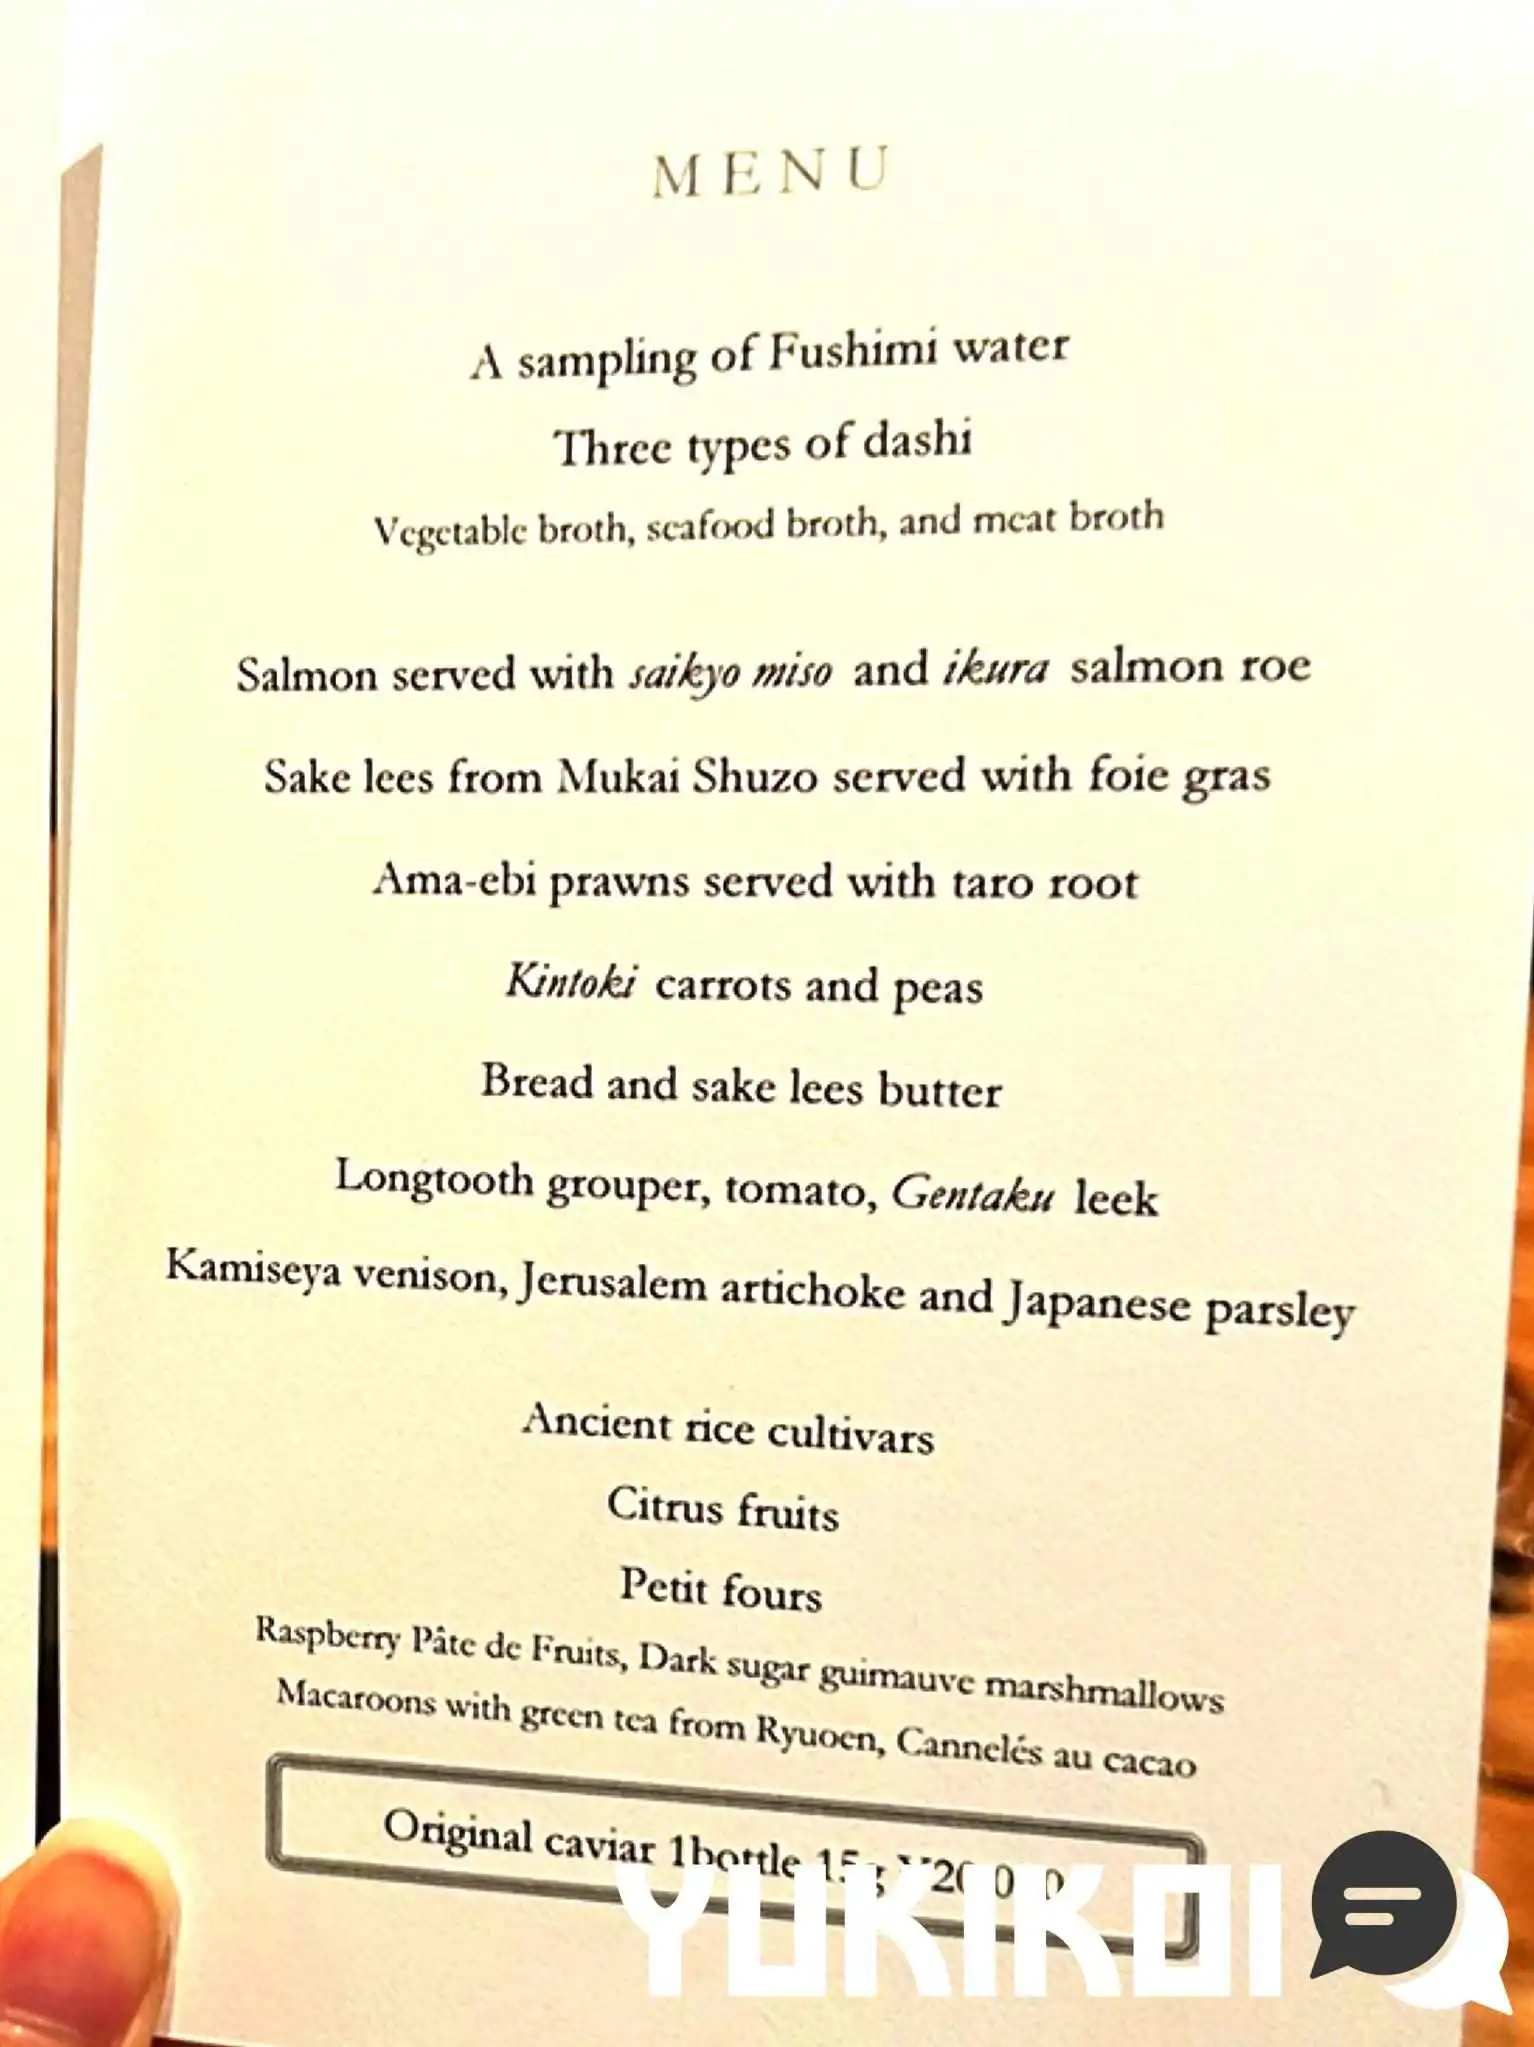 MENU
A sampling of Fushimi water
Three types of dashi
Vegetable broth, seafood broth, and meat broth
Salmon served with saikyo miso and ikura salmon roe
Sake lees from Mukai Shuzo served with foie gras
Ama-ebi prawns served with taro root
Kintoki carrots and peas
Bread and sake lees butter
Longtooth grouper, tomato, Gentaku leek
Kamiseya venison, Jerusalem artichoke and Japanese parsley
Ancient rice cultivars
Citrus fruits
Petit fours
Raspberry Pâte de Fruits, Dark sugar guimauve marshmallows
Macaroons with green tea from Ryuoen, Cannelés au cacao
Original caviar 1bottle 15g
YUKIKOI